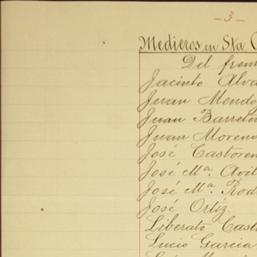 - 3 -
Medieros en Sta
Del fren
Jacinto Alva
Juan Mendo
Juan Barrelo
Juan Moreno
José Castoren
José Ma. Avil
José Ma. Rod
José Ortiz
Liberato Cast
Lucio Garcia